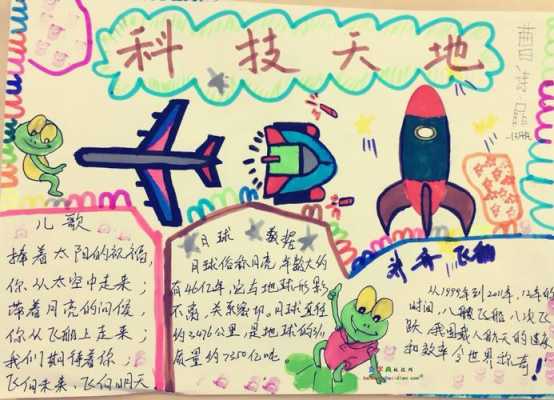 科技天地
儿歌
捧着太阳的祝福,
你从太空中走来;
带着月亮的问候,
你从飞船上走来;
我们期待着你;
飞向未来、飞向明天
月球 数据
月球俗称月亮,年大约
有46亿年,它与地球形影
不离,关系密切,月球直径
约3476公里,是地球的3/11
质量约7350亿吨
神舟飞船
从1999年到2011年,12年的
时间,八艘飞船,八次飞
跃,我国载人航天的速度
和效率令世界奇!